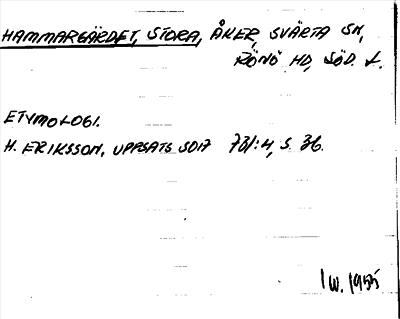 HAMMARGÄRDET, STORA, ÅKER, SVÄRTA SN,
RÖNÖ HD, SÖD. L.
ETYMOLOGI.
H. ERIKSSON, UPPSATS SOIA 731:4, S. 36.
IW. 1955